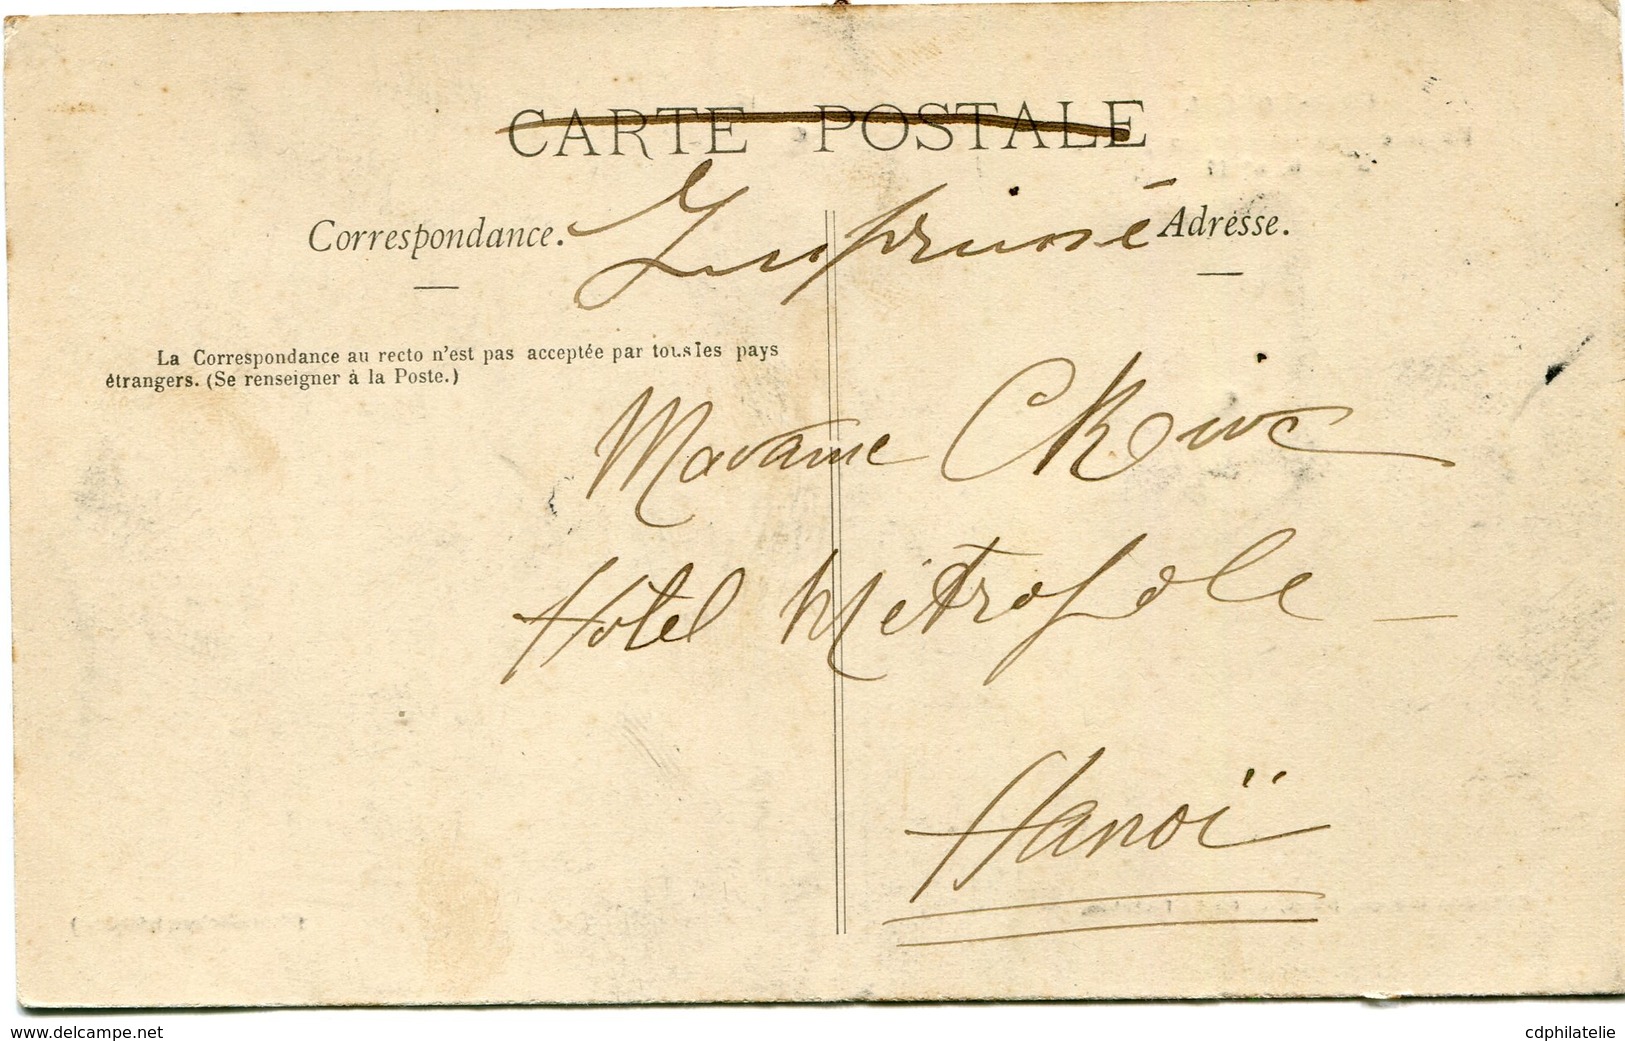 CARTE POSTALE
Imprimé
Correspondance. Adresse.
La Correspondance au recto n'est pas acceptée par tous les pays
étrangers. (Se renseigner à la Poste.)
Madame
Hôtel Métropole
Hanoï
www.delcampe.net
cdphilatelie